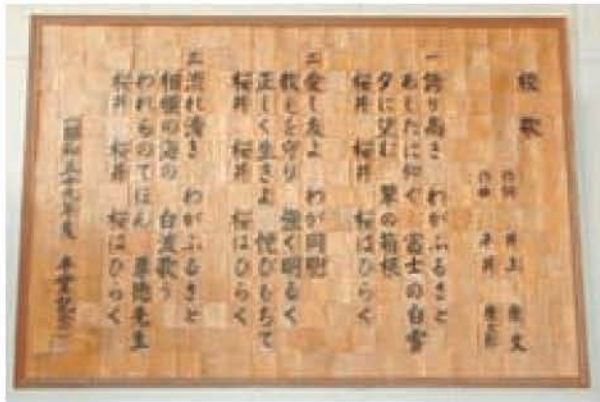 校歌
作詞 井上 
作曲 平井 
一 誇り高き わがふるさと
あしたに仰ぐ 富士の白雪
夕に望む 翠の箱根
桜井 桜井 桜はひらく
二 愛し友よ わが同胞
教えを守り 強く明るく
正しく生きよ 悦びもちて
桜井 桜井 桜はひらく
三 流れ清き わがふるさと
相模の海の 白波歌う
われらのてほん 尊徳先生
桜井 桜井 桜はひらく
昭和五十九年度 卒業記念